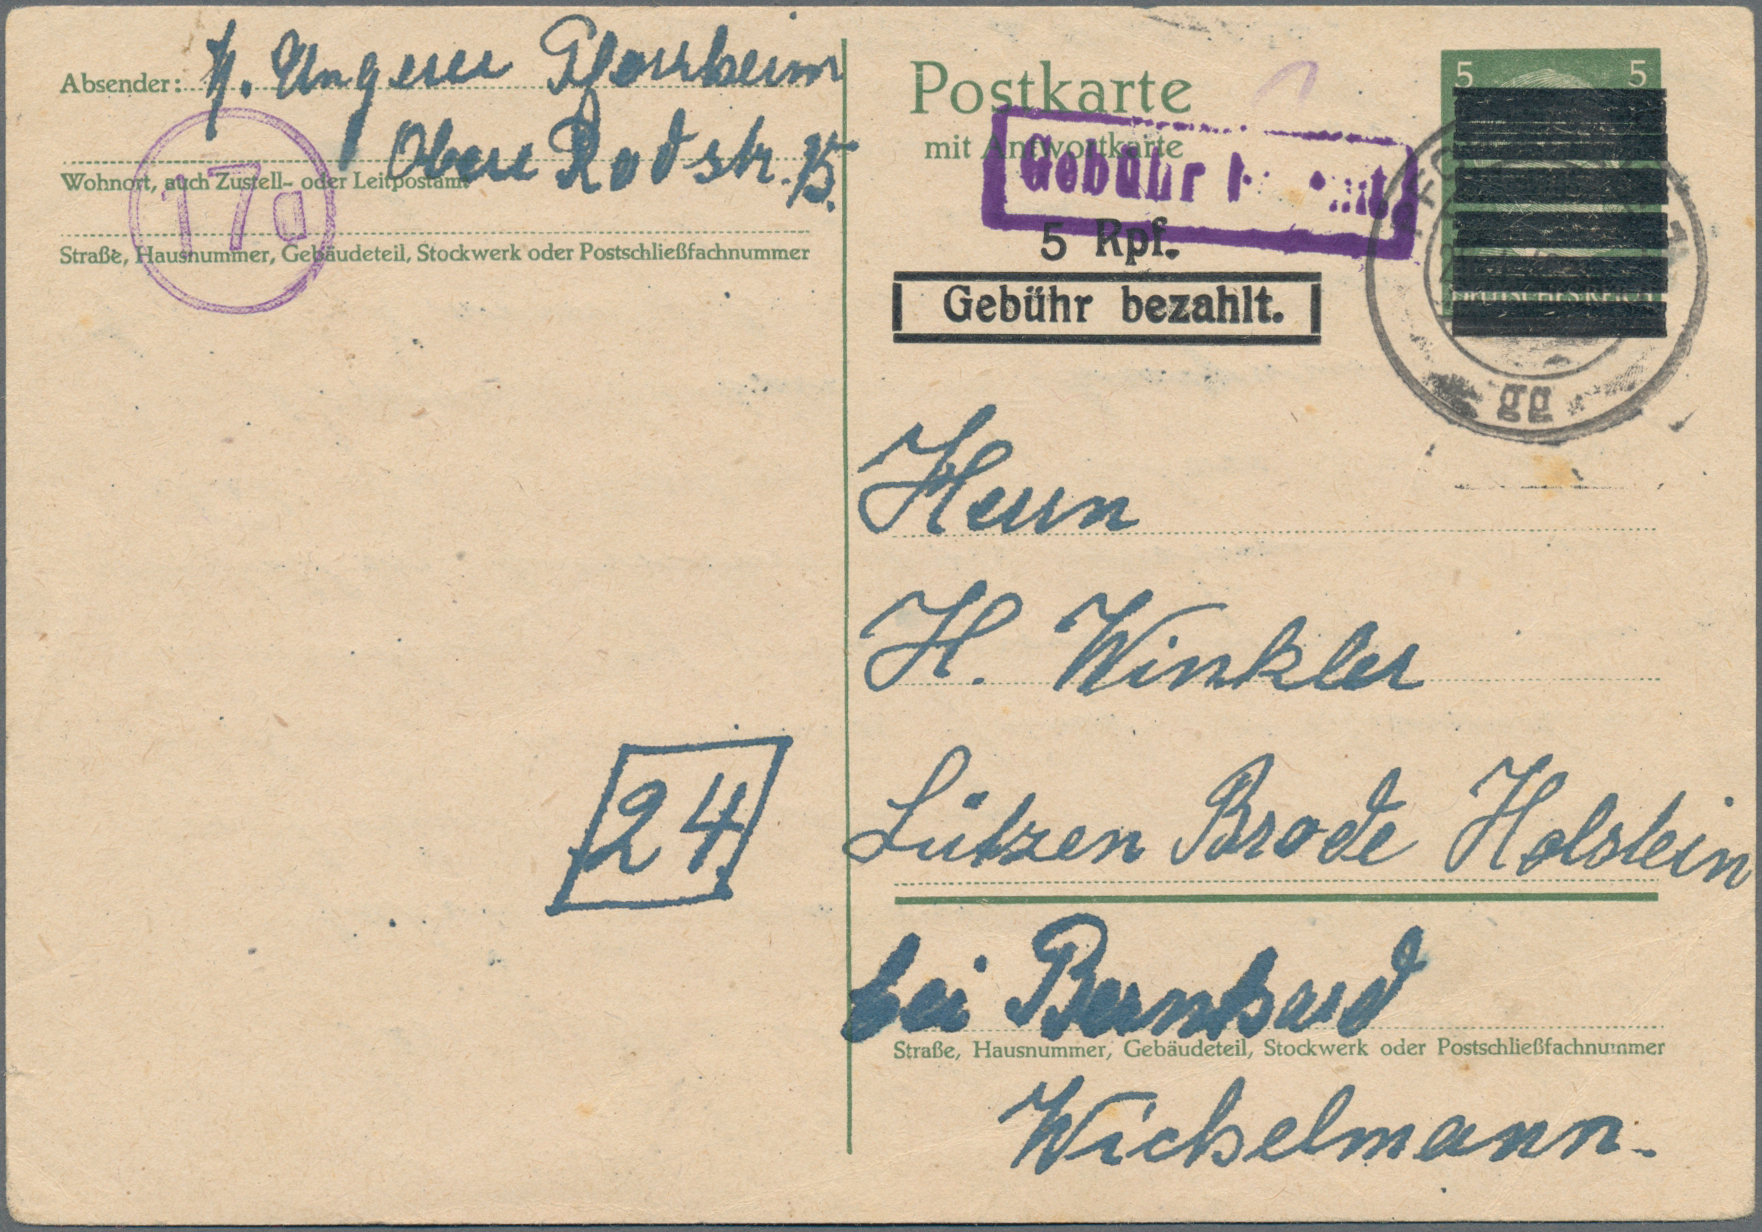 Absender: H. Ungerer Pforzheim
Obere Rodstr. 15.
Wohnort, auch Zustell- oder Leitpostamt
17a
Straße, Hausnummer, Gebäudeteil, Stockwerk oder Postschließfachnummer
24
Postkarte
mit Antwortkarte
Gebühr
5 Rpf.
Gebühr bezahlt.
5 5
DEUTSCHES REICH
gg
Herrn
H. Winkler
Lützen Brode Holstein
bei Bernhard
Straße, Hausnummer, Gebäudeteil, Stockwerk oder Postschließfachnummer
Wichelmann.